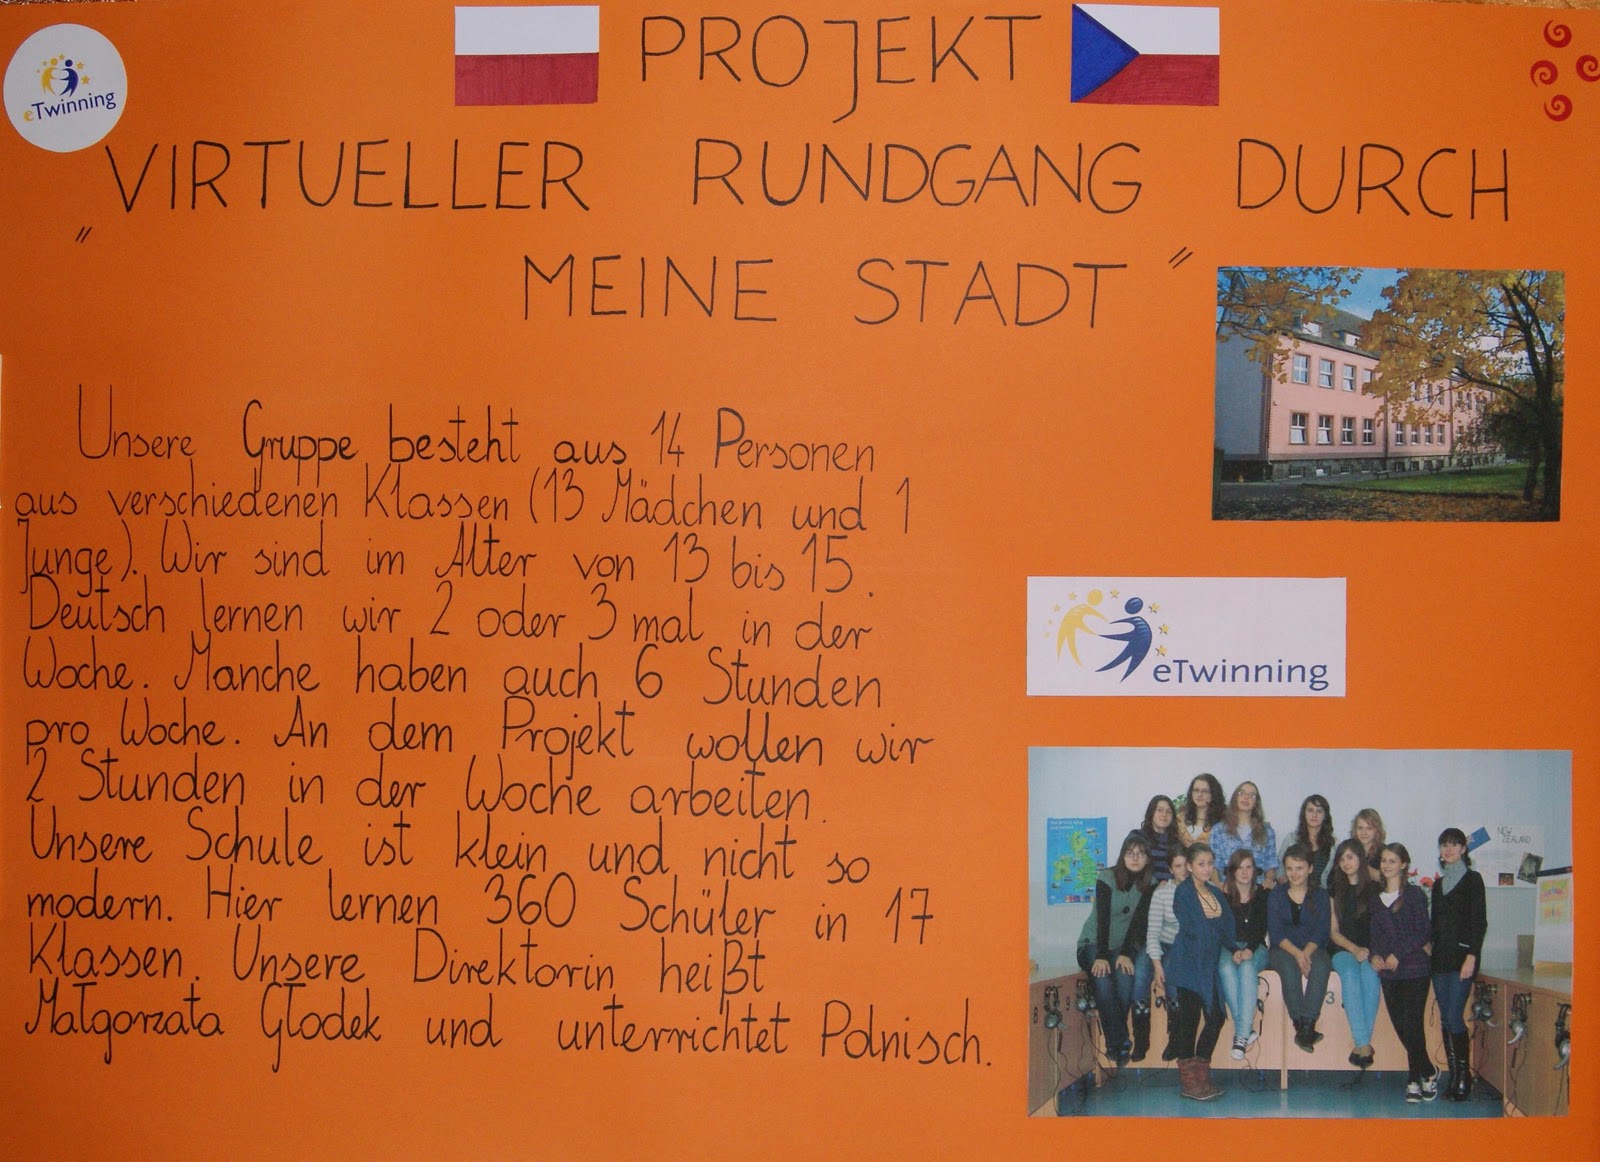 eTwinning
PROJEKT
"VIRTUELLER RUNDGANG DURCH
MEINE STADT"
Unsere Gruppe besteht aus 14 Personen
aus verschiedenen Klassen (13 Mädchen und 1
Junge). Wir sind im Alter von 13 bis 15.
Deutsch lernen wir 2 oder 3 mal in der
Woche. Manche haben auch 6 Stunden
pro Woche. An dem Projekt wollen wir
2 Stunden in der Woche arbeiten.
Unsere Schule ist klein und nicht so
modern. Hier lernen 360 Schüler in 17
Klassen. Unsere Direktorin heißt
Małgorzata Głodek und unterrichtet Polnisch.
eTwinning
NEW
ZEALAND
3